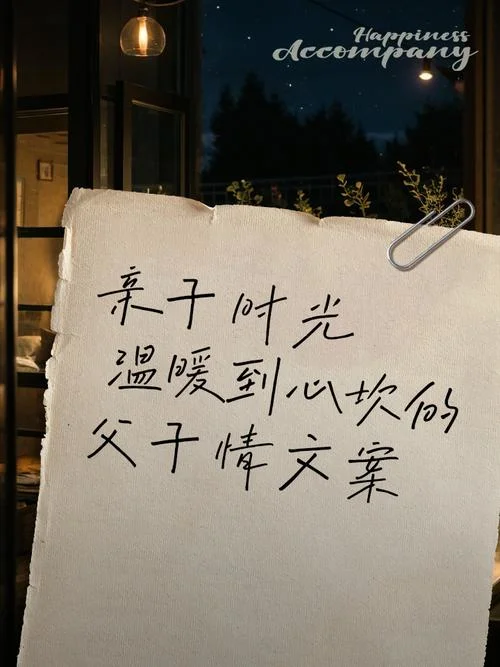 Happiness
Accompany
亲子时光
温暖到心坎的
父子情文案